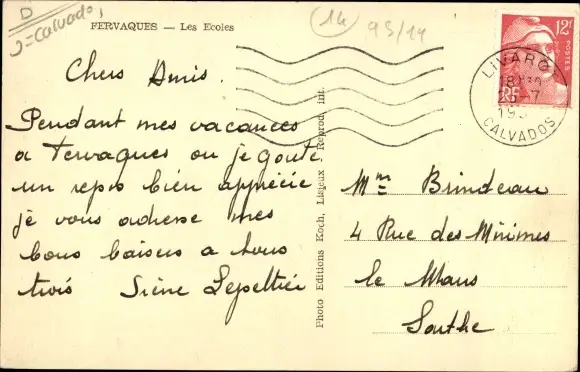 D
J=Calvados
FERVAQUES — Les Ecoles
14
93/14
12F
POSTES
RF
LIVAROT
18H30
-7
195
CALVADOS
Chers Amis.
Pendant mes vacances
a Fervaques ou je goute
un repos bien apprécié
je vous adresse mes
bons baisers a tous
trois Irène Lepeltier
Photo Editions Koch, Lisieux. Reprod. int.
Mme Brindeau
4 Rue des Minimes
le Mans
Sarthe